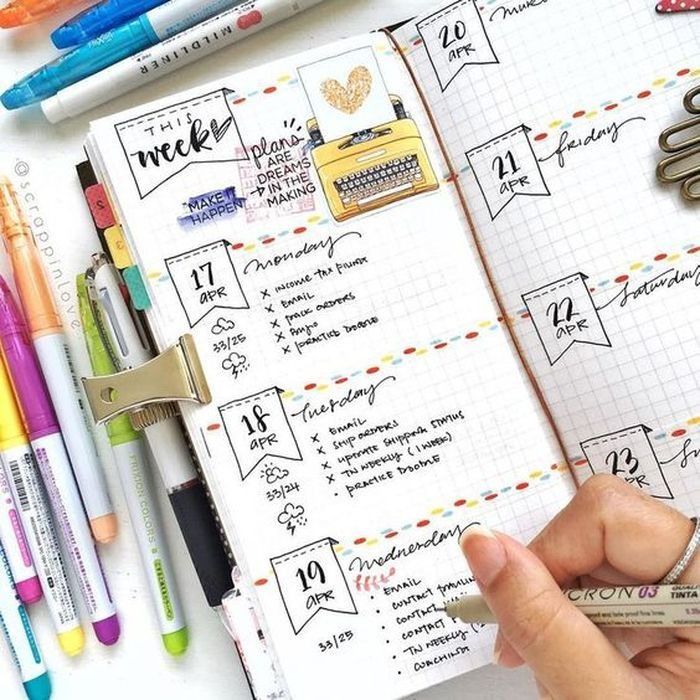 MILDLINER
THIS
week
plans
ARE
DREAMS
IN THE
MAKING
MAKE
HAPPEN
@scrappinlove
17
APR
monday
X INCOME TAX FILING
X EMAIL
X PACK ORDERS
X
X PRACTICE DOODLE
33/25
18
APR
Tuesday
X EMAIL
X SHIP ORDERS
X UPDATE SHIPPING STATUS
X TN WEEKLY (1 WEEK)
· PRACTICE DOODLE
33/24
19
APR
Wednesday
• EMAIL
• CONTACT
• CONTACT
• CONTACT
• TN WEEKLY
• COACHING
33/25
20
APR
21
APR
friday
22
APR
Saturday
23
APR
FRIXION COLORS
CRON 03
TINTA